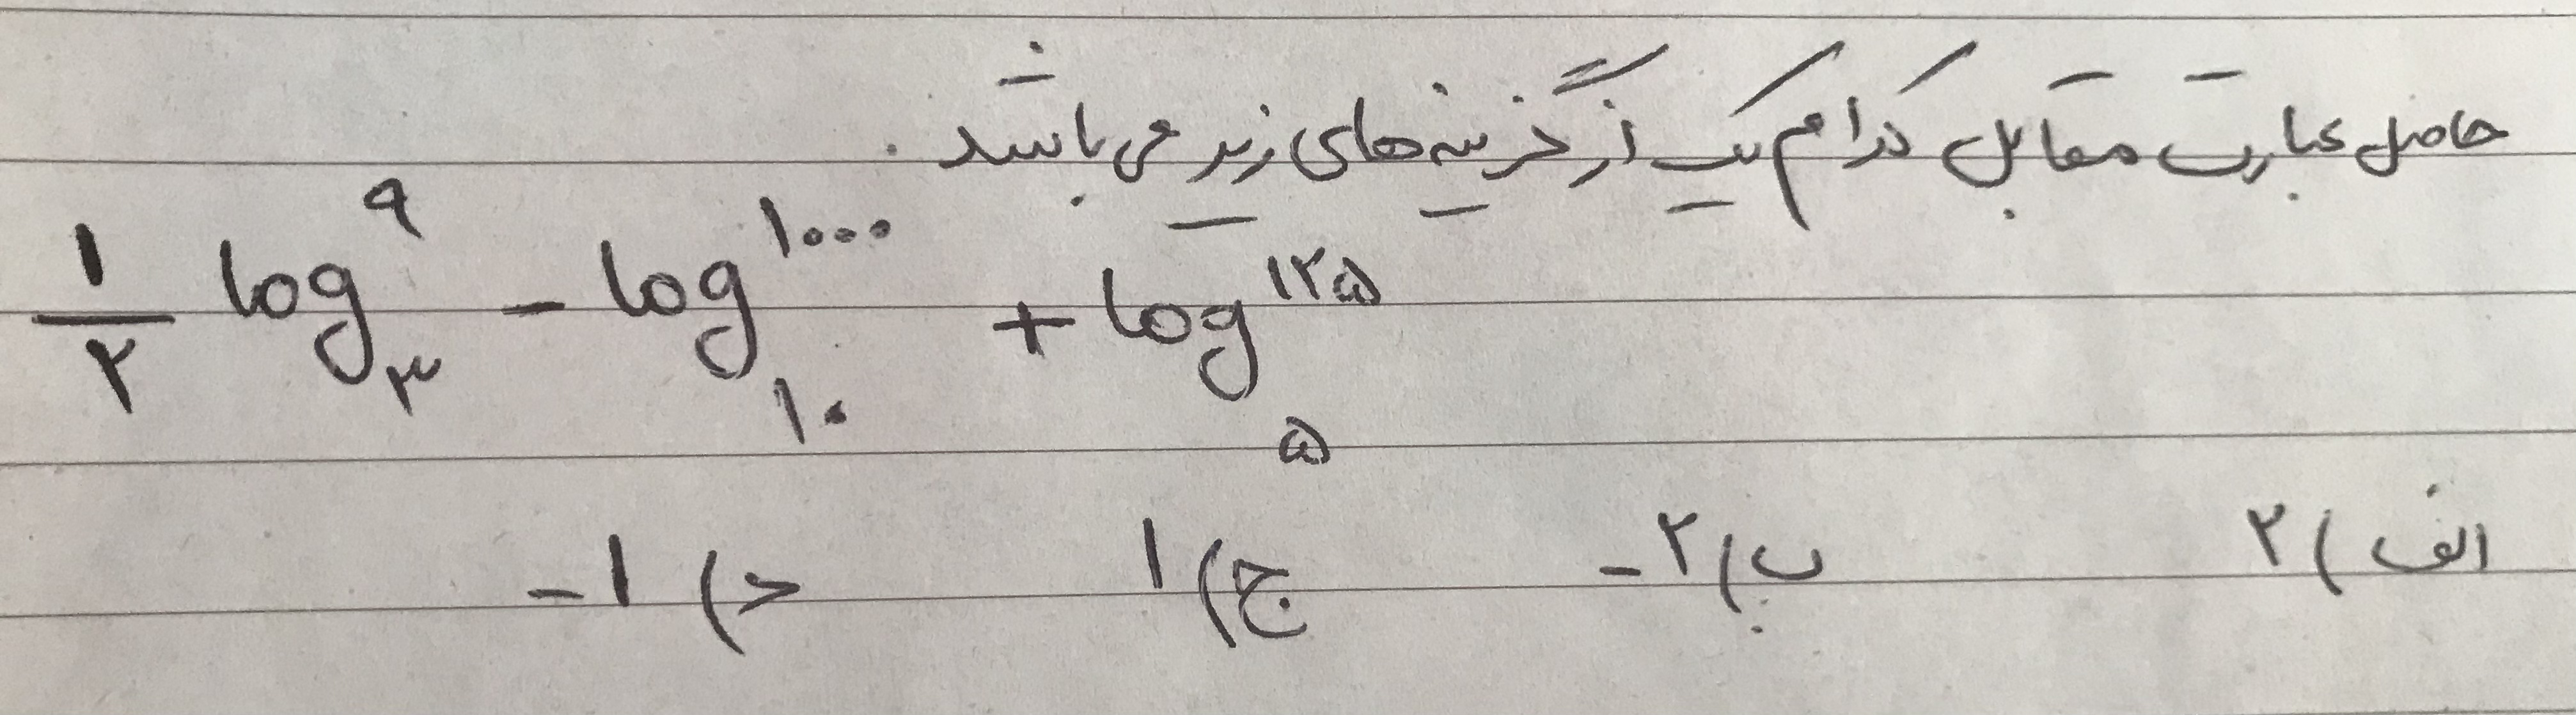 حاصل عبارت مقابل کدام یک از گزینه‌های زیر می باشد.
۱/۲ log₃^۹ - log₁۰^۱۰۰۰ + log₅^۱۲۵
الف) ۲ ب) ۲- ج) ۱ د) ۱-